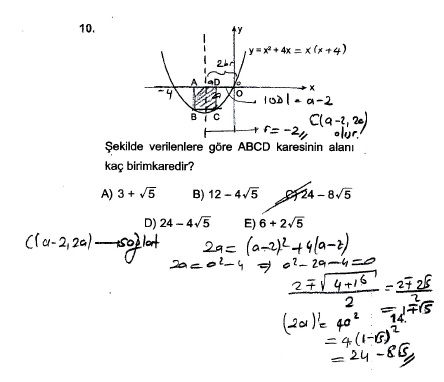 10.
y
2br
y = x² + 4x = x(x+4)
A a D
-4 O x
2a
|OD| = a-2
B C
r = -2
C(a-2, 2a)
olur.
Şekilde verilenlere göre ABCD karesinin alanı
kaç birimkaredir?
A) 3 + √5 B) 12 – 4√5 C) 24 – 8√5
D) 24 – 4√5 E) 6 + 2√5
C(a-2, 2a) → sağlat
2a = (a-2)² + 4(a-2)
2a = a² - 4 ⇒ a² - 2a - 4 = 0
2∓√4+16 / 2 = 2∓2√5 / 2
= 1∓√5
(2a)² = 4a²
= 4(1-√5)²
= 24 - 8√5